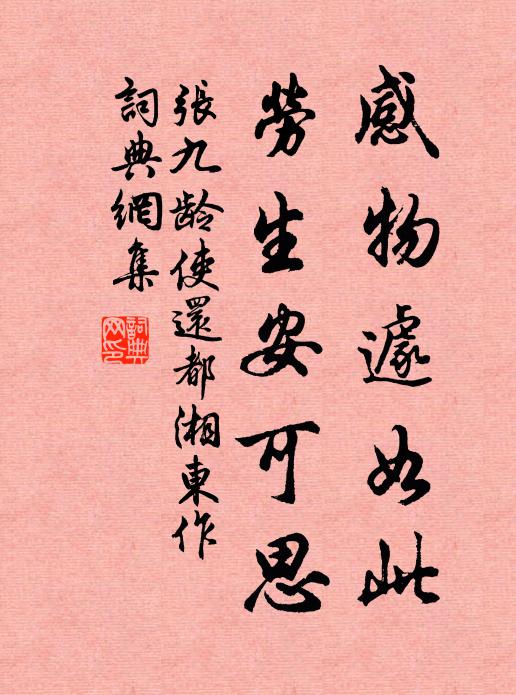 感物遽如此
勞生安可思
張九龄使還都湘東作
詞典網集
詞典網印